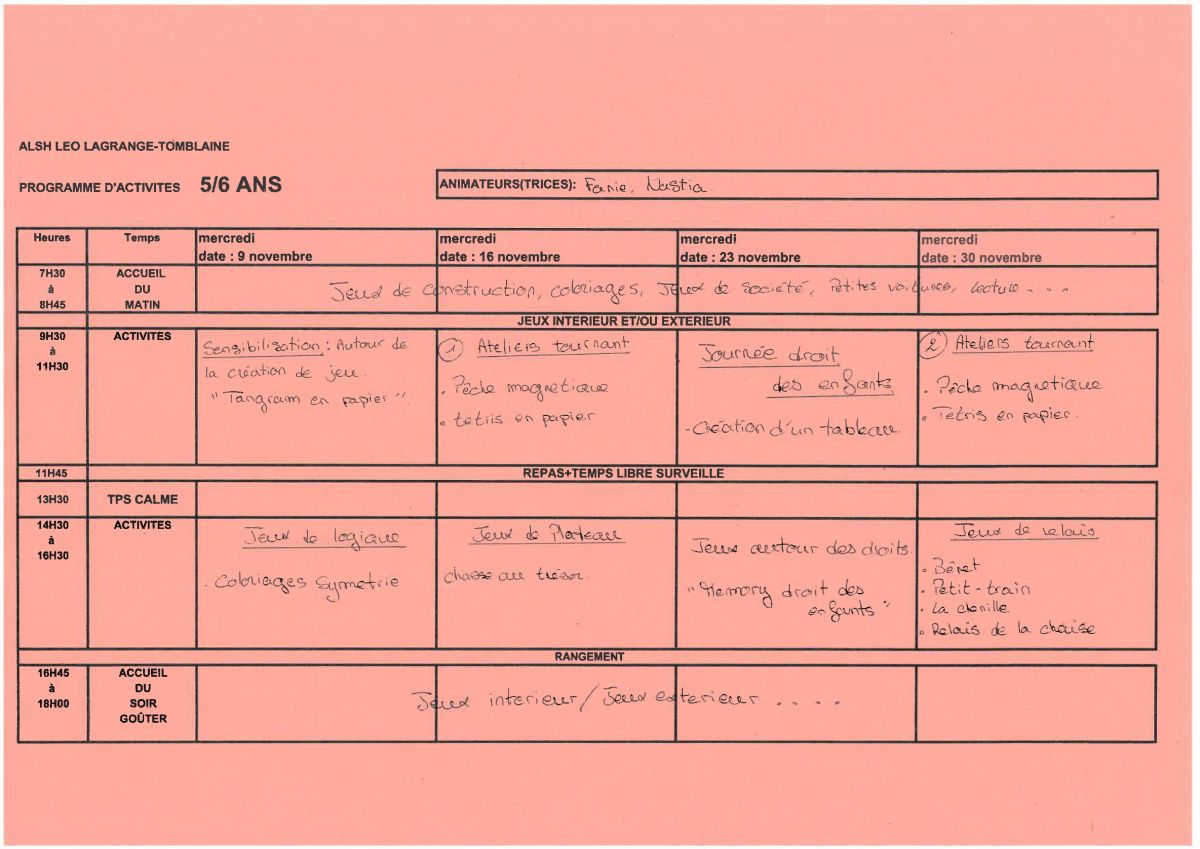 ALSH LEO LAGRANGE-TOMBLAINE
PROGRAMME D'ACTIVITES 5/6 ANS
ANIMATEURS(TRICES): Fanie, Nastia.
Heures
Temps
mercredi
date : 9 novembre
mercredi
date : 16 novembre
mercredi
date : 23 novembre
mercredi
date : 30 novembre
7H30
à
8H45
ACCUEIL
DU
MATIN
Jeux de construction, coloriages, Jeux de société, Petites voitures, lecture . . .
JEUX INTERIEUR ET/OU EXTERIEUR
9H30
à
11H30
ACTIVITES
Sensibilisation : Autour de
la création de jeu.
"Tangram en papier".
1 Ateliers tournant
. Pêche magnetique
. tetris en papier
Journée droit
des enfants
- Création d'un tableau.
2 Ateliers tournant
. Pêche magnetique
. Tetris en papier.
11H45
REPAS+TEMPS LIBRE SURVEILLE
13H30
TPS CALME
14H30
à
16H30
ACTIVITES
Jeux de logique
. Coloriages Symetrie
Jeux de Plateau
chasse au trésor.
Jeux autour des droits.
"Memory droit des
enfants"
Jeux de relais
. Béret
. Petit-train
. La chenille
. Relais de la chaise
RANGEMENT
16H45
à
18H00
ACCUEIL
DU
SOIR
GOÛTER
Jeux interieur / Jeux exterieur . . . . .